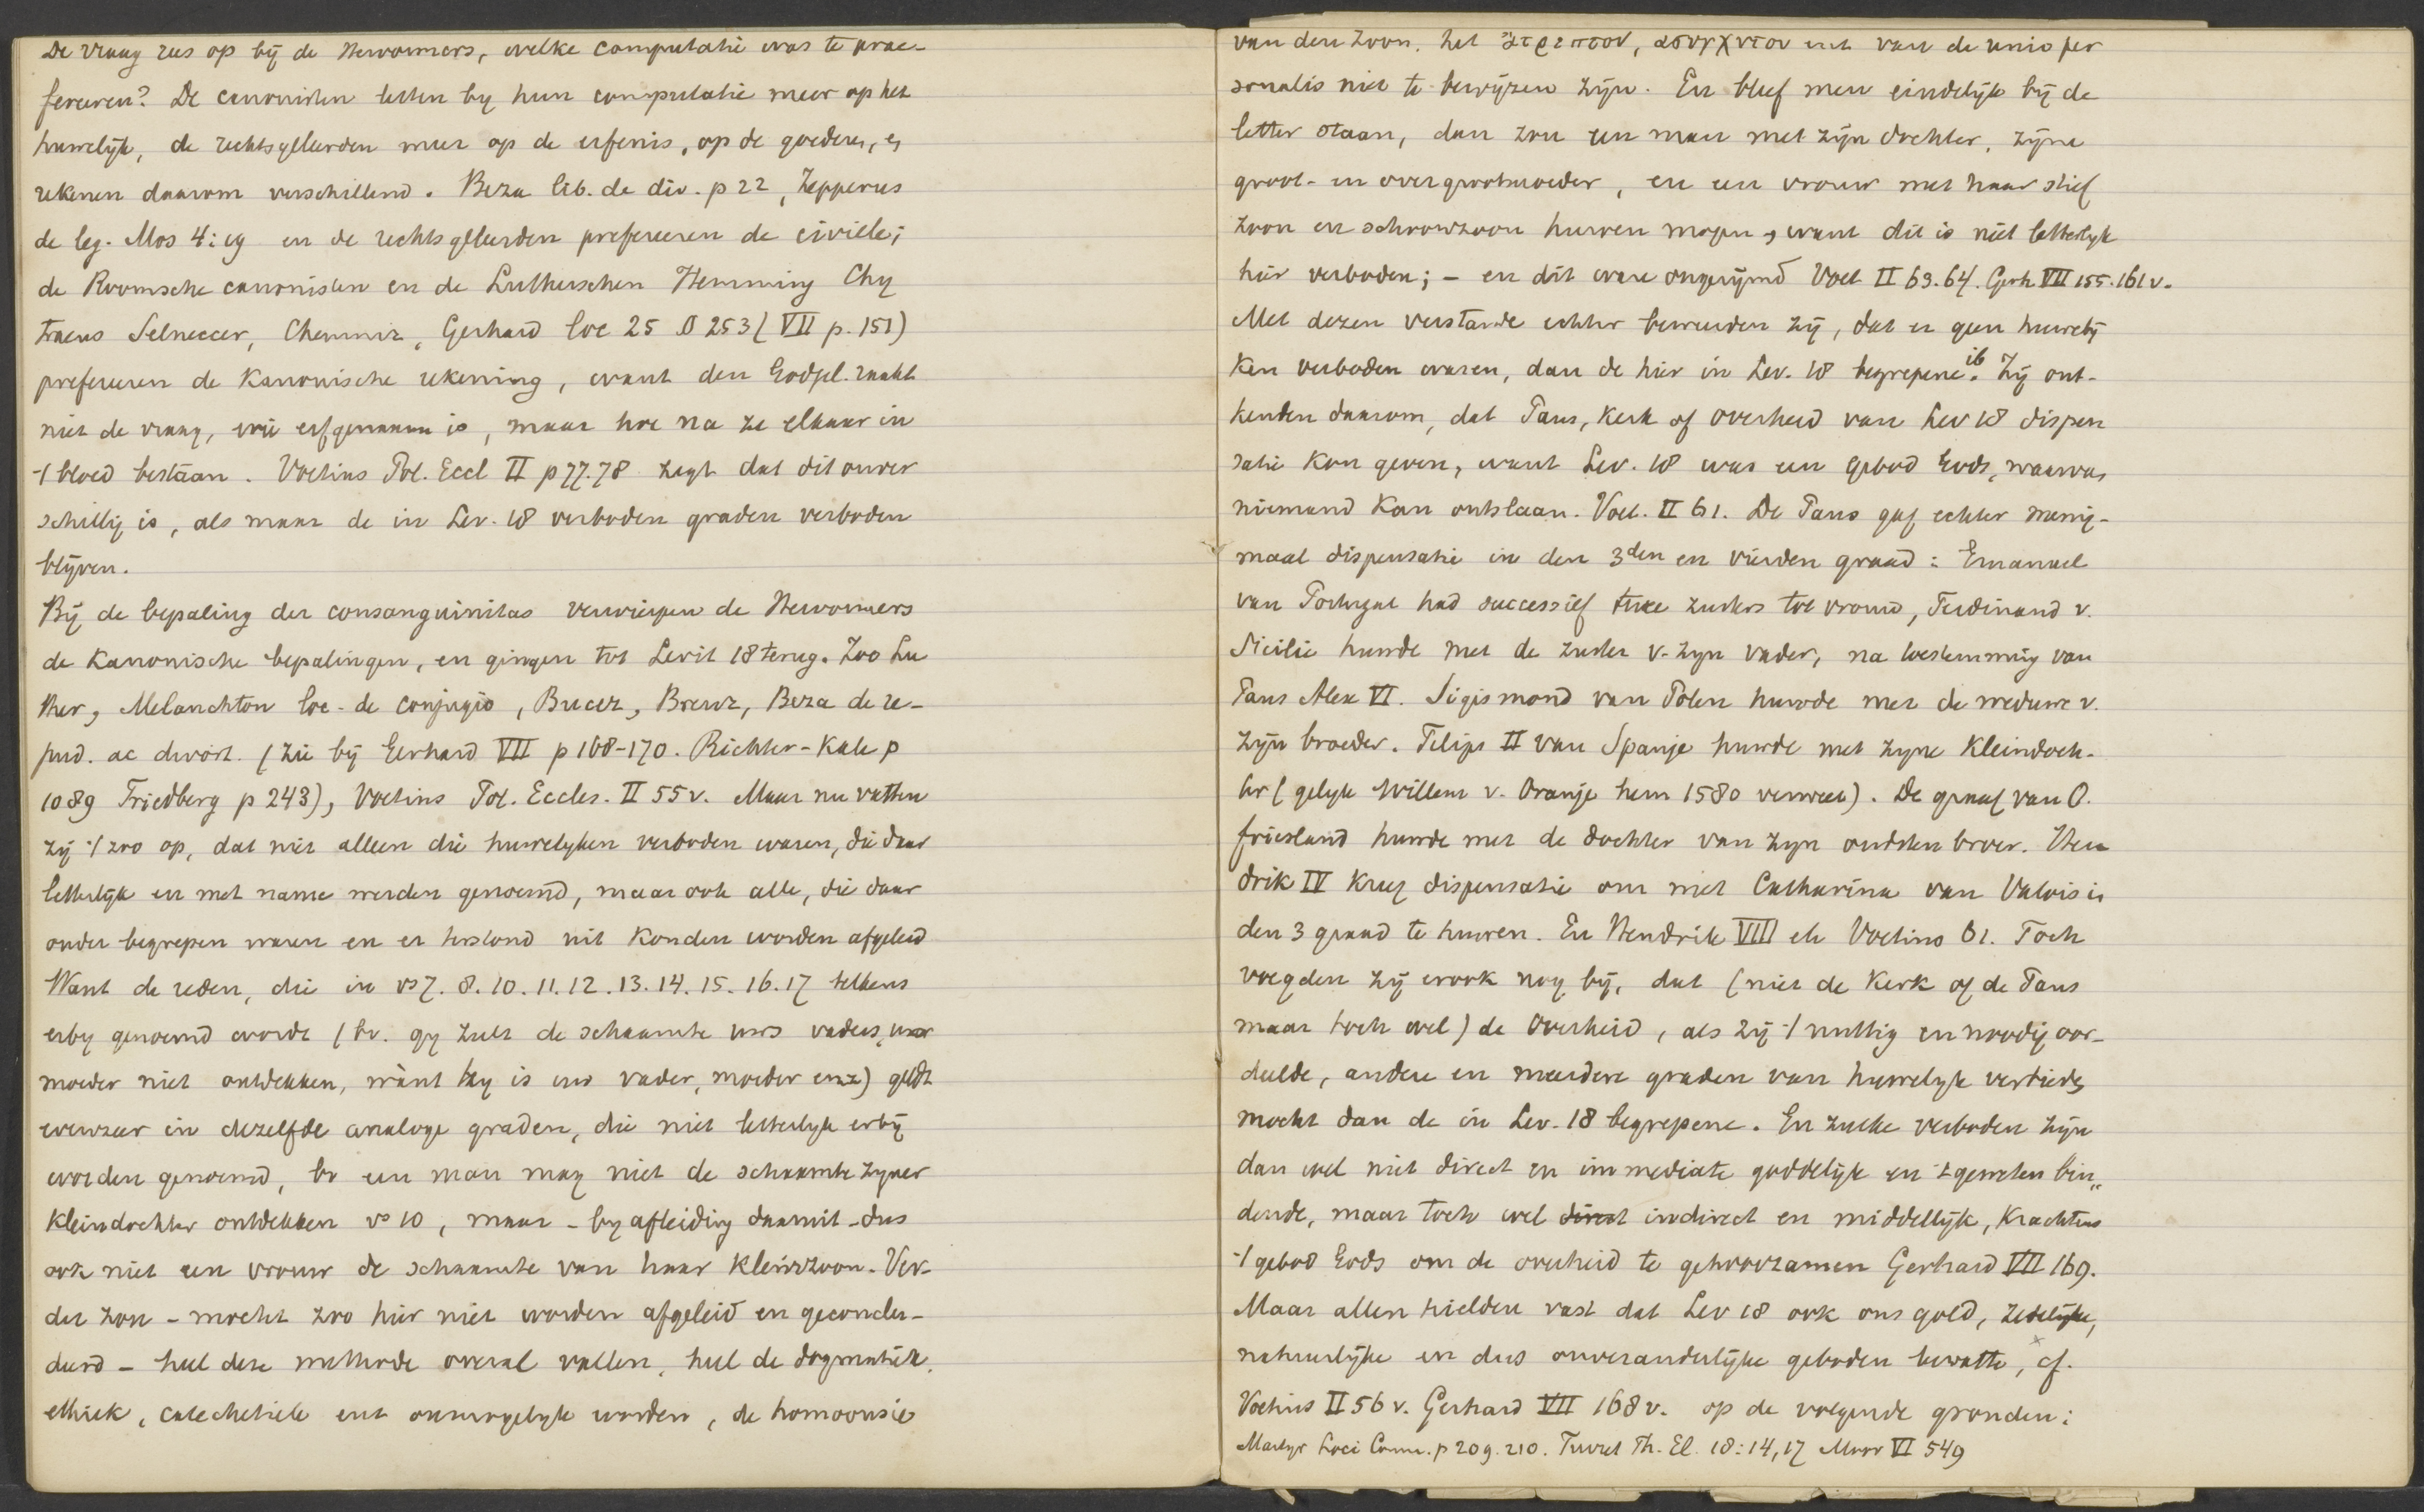 De vraag rees op bij de Hervormers, welke computatie was te prae-
fereeren? De canonisten letten by hun computatie meer op het
huwelijk, de rechtsgeleerden meer op de erfenis, op de goederen, en
rekenen daarom verschillend. Beza lib. de div. p 22, Zepperus
de leg. Mos 4:19 en de rechtsgeleerden prefereeren de civiele;
de Roomsche canonisten en de Lutherschen Hemming Chy
traeus Selneccer, Chemniz, Gerhard loc 25 § 253 (VII p. 151)
prefereeren de Kanonische rekening, want den Godgel. raakt
niet de vraag, wie erfgenaam is, maar hoe na ze elkaar in
't bloed bestaan. Voetius Pol. Eccl II p 77.78 zegt dat dit onver
schillig is, als maar de in Lev. 18 verboden graden verboden
blijven.
Bij de bepaling der consanguinitas verwierpen de Hervormers
de Kanonische bepalingen, en gingen tot Levit 18 terug. Zoo Lu
ther, Melanchton loc. de conjugio, Bucer, Brenz, Beza de re-
pud. ac divort. (zie bij Gerhard VII p 168-170. Richter-Kahl p
1089 Friedberg p 243), Voetius Pol. Eccles. II 55 v. Maar nu vatten
zij 't zoo op, dat niet alleen die huwelyken verboden waren, die daar
letterlijk en met name werden genoemd, maar ook alle, die daar
onder begrepen waren en er terstond uit konden worden afgeleid
Want de reden, die in vs 7. 8. 10. 11. 12. 13. 14. 15. 16. 17 telkens
erby genoemd wordt (bv. gy zult de schaamte uws vaders, uwer
moeder niet ontdekken, want hy is uw vader, moeder enz) geldt
evenzeer in dezelfde analoge graden, die niet letterlyk erbij
worden genoemd, bv een man mag niet de schaamte zyner
Kleindochter ontdekken vs 10, maar - by afleiding daaruit - dus
ook niet een vrouw de schaamte van haar Kleinzoon. Ver-
der zou - mocht zoo hier niet worden afgeleid en geconclu-
deerd - heel deze methode overal vallen, heel de dogmatiek,
ethiek, catechetiek ent onmogelyk worden, de homoousie
van den Zoon, het ἄτρεπτον, ἀσυγχυτον ent van de unio per
sonalis niet te bewijzen zijn. En bleef men eindelijk bij de
letter staan, dan zou een man met zijn dochter, zijne
groot- en overgrootmoeder, en een vrouw met haar stief
zoon en schoonzoon huwen mogen, want dit is niet letterlyk
hier verboden; - en dit ware ongerijmd Voet II 63.64. Gerh VII 155.161 v.
Met dezen verstande echter beweerden zij, dat er geen huwelij
ken verboden waren, dan de hier in Lev. 18 begrepene ib. Zij ont-
kenden daarom, dat Paus, Kerk of Overheid van Lev 18 dispen
satie Kon geven, want Lev. 18 was een gebod Gods, waarvan
niemand Kan ontslaan. Voet. II 61. De Paus gaf echter menig-
maal dispensatie in den 3den en vierden graad: Emanuel
van Portugal had successief twee zusters tot vrouw, Ferdinand v.
Sicilie huwde met de zuster v. zyn vader, na toestemming van
Paus Alex VI. Sigismond van Polen huwde met de weduwe v.
zijn broeder. Filips II van Spanje huwde met zyne Kleindoch-
ter (gelyk Willem v. Oranje hem 1580 verweet). De graaf van O.
friesland huwde met de dochter van zyn oudsten broer. Hen
drik IV kreeg dispensatie om met Catharina van Valois in
den 3 graad te huwen. En Hendrik VIII etc Voetius 61. Toch
voegden zij er ook nog bij, dat (niet de Kerk of de Paus
maar toch wel) de Overheid, als zij 't nuttig en noodig oor-
deelde, andere en meerdere graden van huwelyk verbieden
mocht dan de in Lev. 18 begrepene. En zulke verboden zijn
dan wel niet direct en immediate goddelijk en 't geweten bin„
dende, maar toch wel direct indirect en middellijk, krachtens
't gebod Gods om de overheid te gehoorzamen Gerhard VII 169.
Maar allen hielden vast dat Lev 18 ook ons gold, zedelijke,
natuurlijke en dus onveranderlijke geboden bevatte, cf.
Voetius II 56 v. Gerhard VII 168 v. op de volgende gronden:
Martyr Loci Comm. p 209. 210. Turret Th. El. 18:14, 17 Moor VI 549